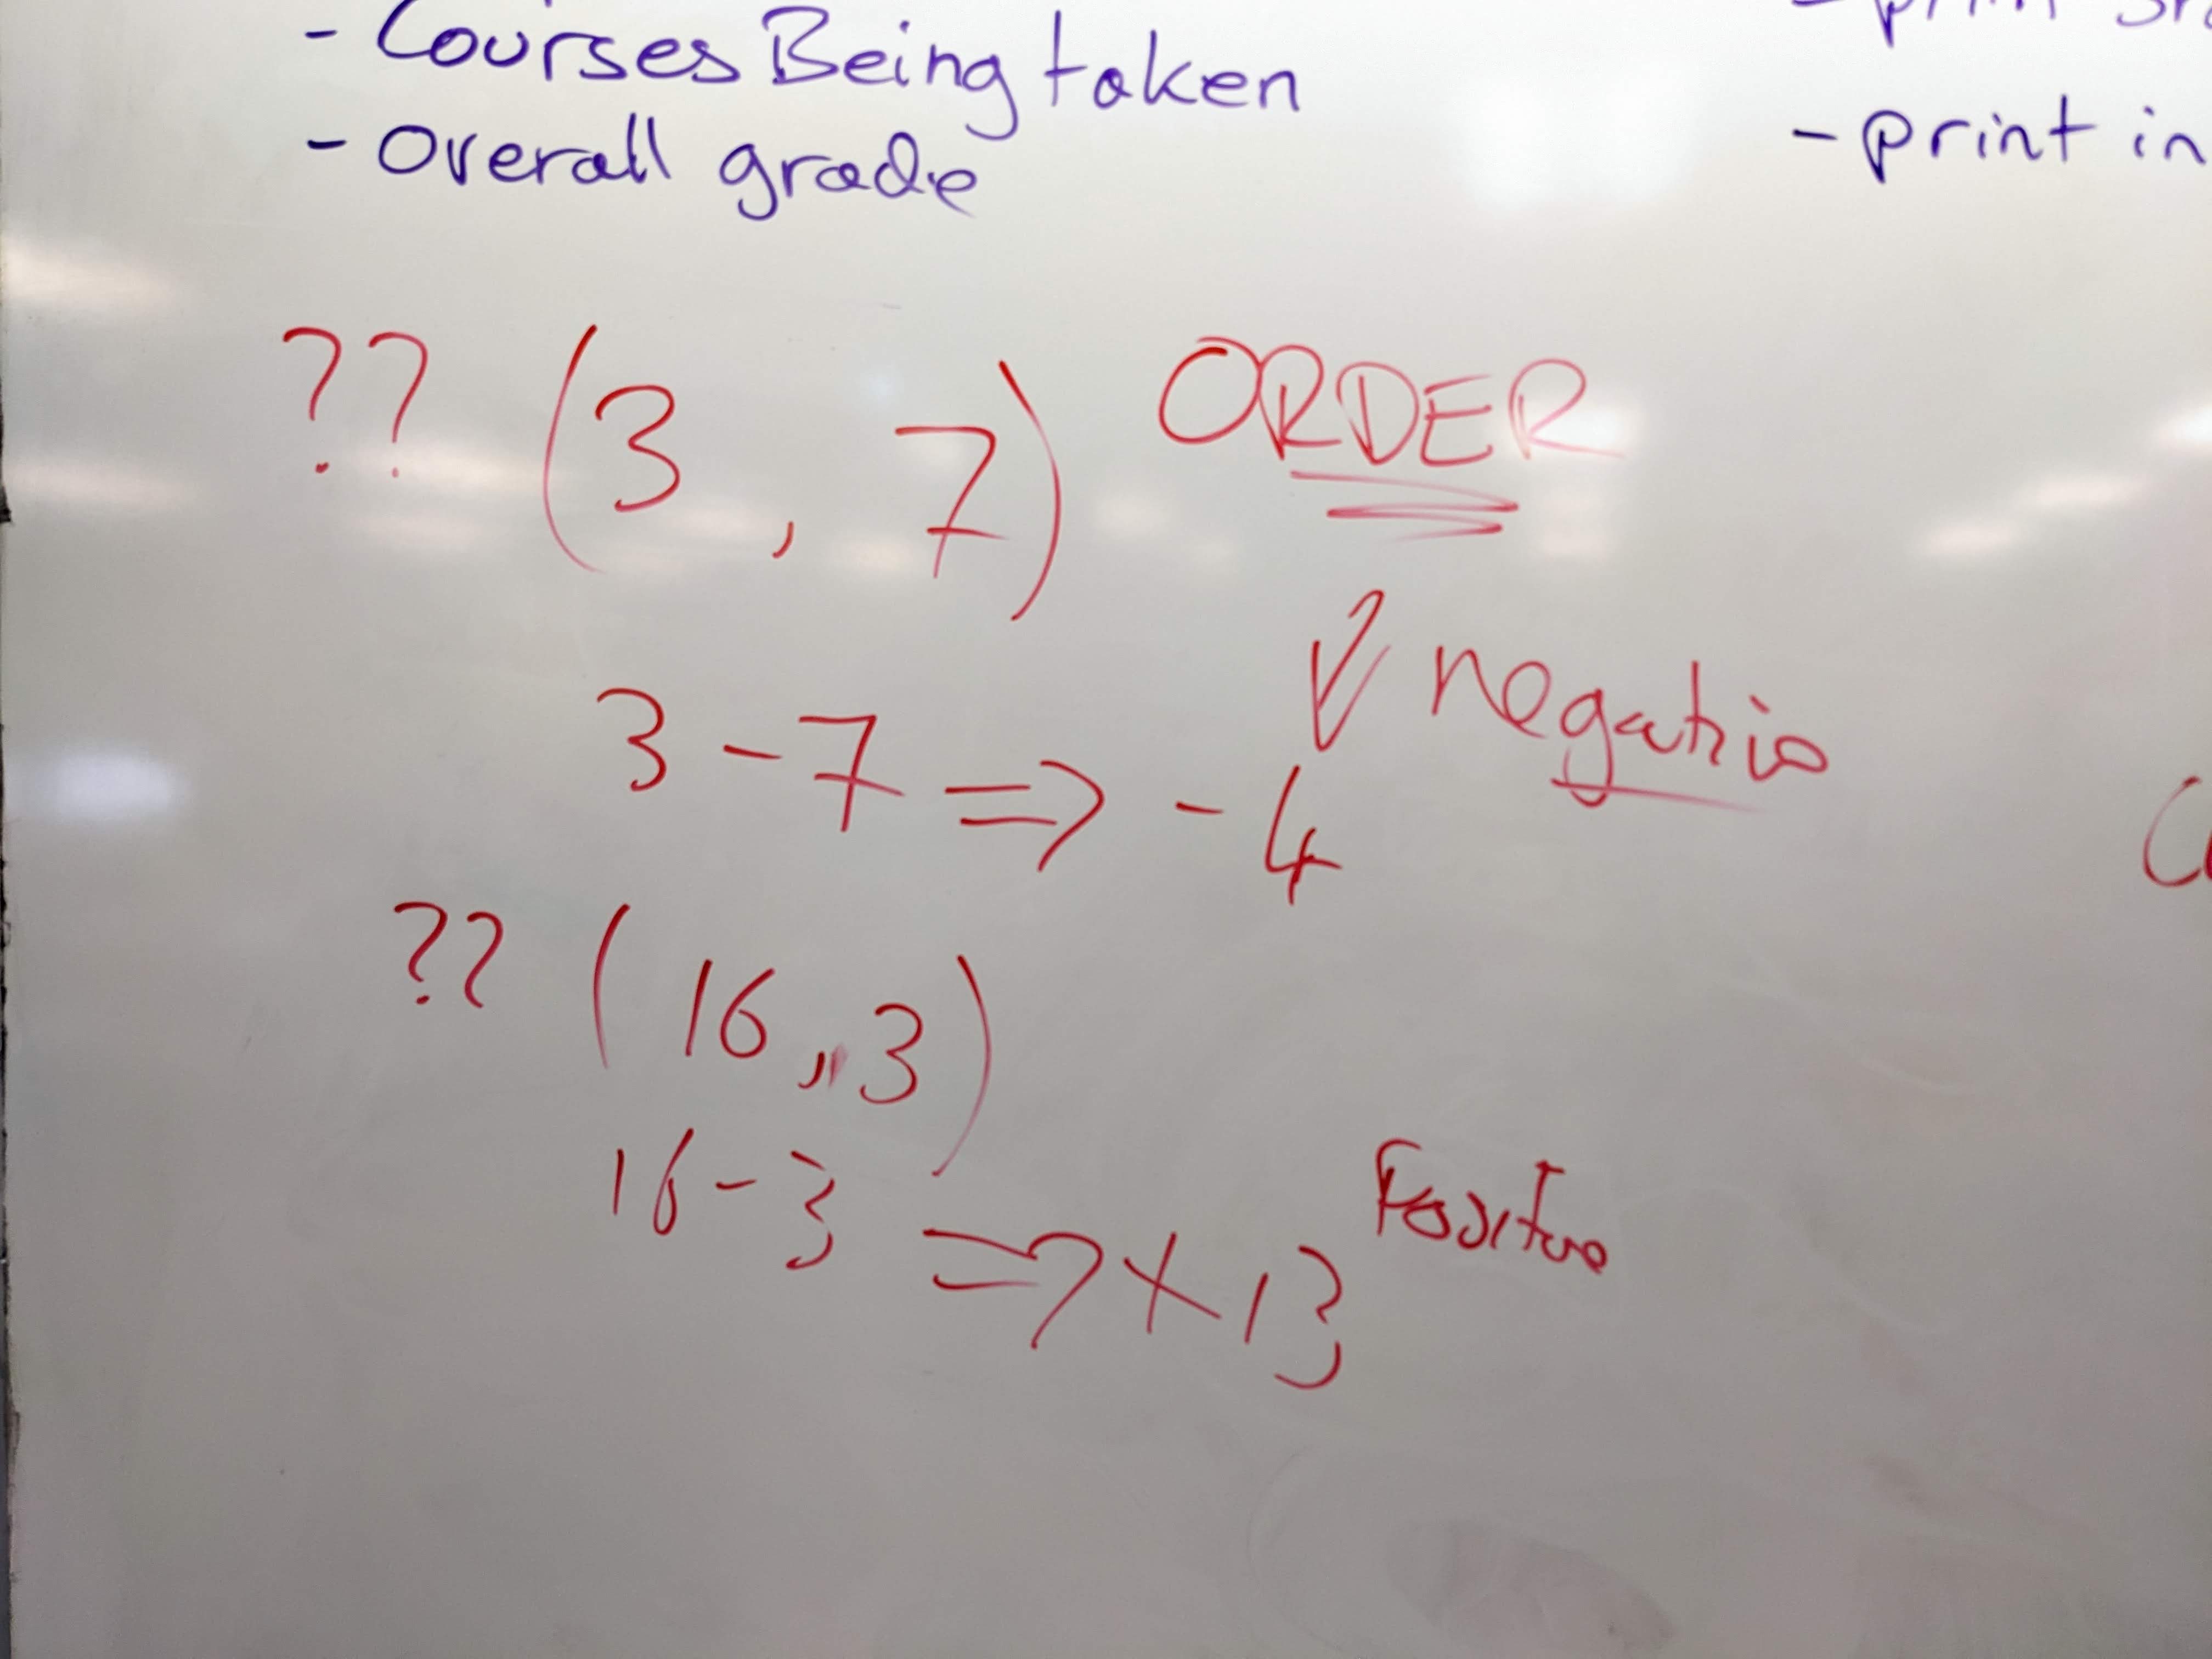 - Courses Being taken
- Overall grade
- print
- print in
?? (3, 7) ORDER
negativ
3 - 7 => - 4
?? (16, 3)
16 - 3 => + 13 Positive